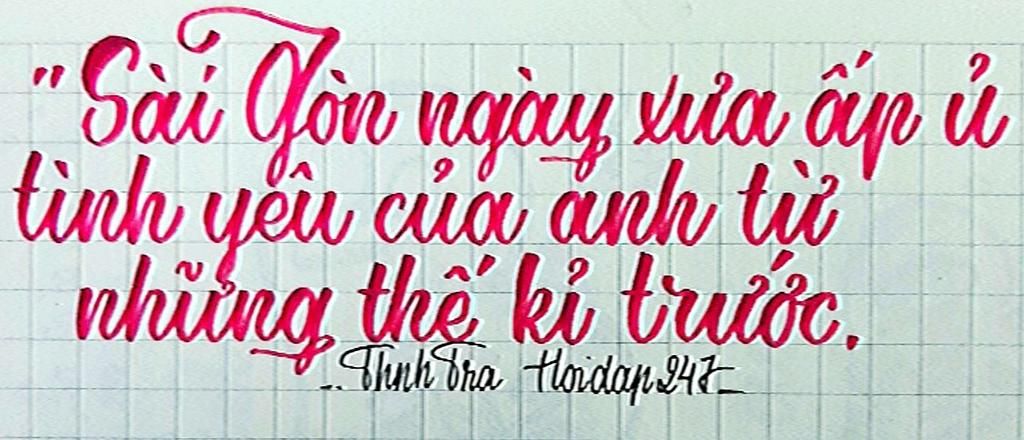 "Sài Gòn ngày xưa ấp ủ
tình yêu của anh từ
những thế kỉ trước.
_.. Thnh Tra Hoidap247_